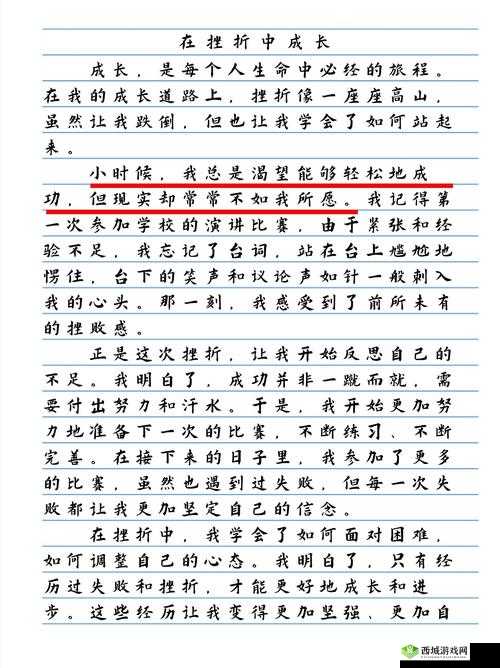 在挫折中成长
成长，是每个人生命中必经的旅程。
在我的成长道路上，挫折像一座座高山，
虽然让我跌倒，但也让我学会了如何站起
来。
小时候，我总是渴望能够轻松地成
功，但现实却常常不如我所愿。我记得第
一次参加学校的演讲比赛，由于紧张和经
验不足，我忘记了台词，站在台上尴尬地
愣住，台下的笑声和议论声如针一般刺入
我的心头。那一刻，我感受到了前所未有
的挫败感。
正是这次挫折，让我开始反思自己的
不足。我明白了，成功并非一蹴而就，需
要付出努力和汗水。于是，我开始更加努
力地准备下一次的比赛，不断练习、不断
完善。在接下来的日子里，我参加了更多
的比赛，虽然也遇到过失败，但每一次失
败都让我更加坚定自己的信念。
在挫折中，我学会了如何面对困难，
如何调整自己的心态。我明白了，只有经
历过失败和挫折，才能更好地成长和进
步。这些经历让我变得更加坚强、更加自
西城游戏网